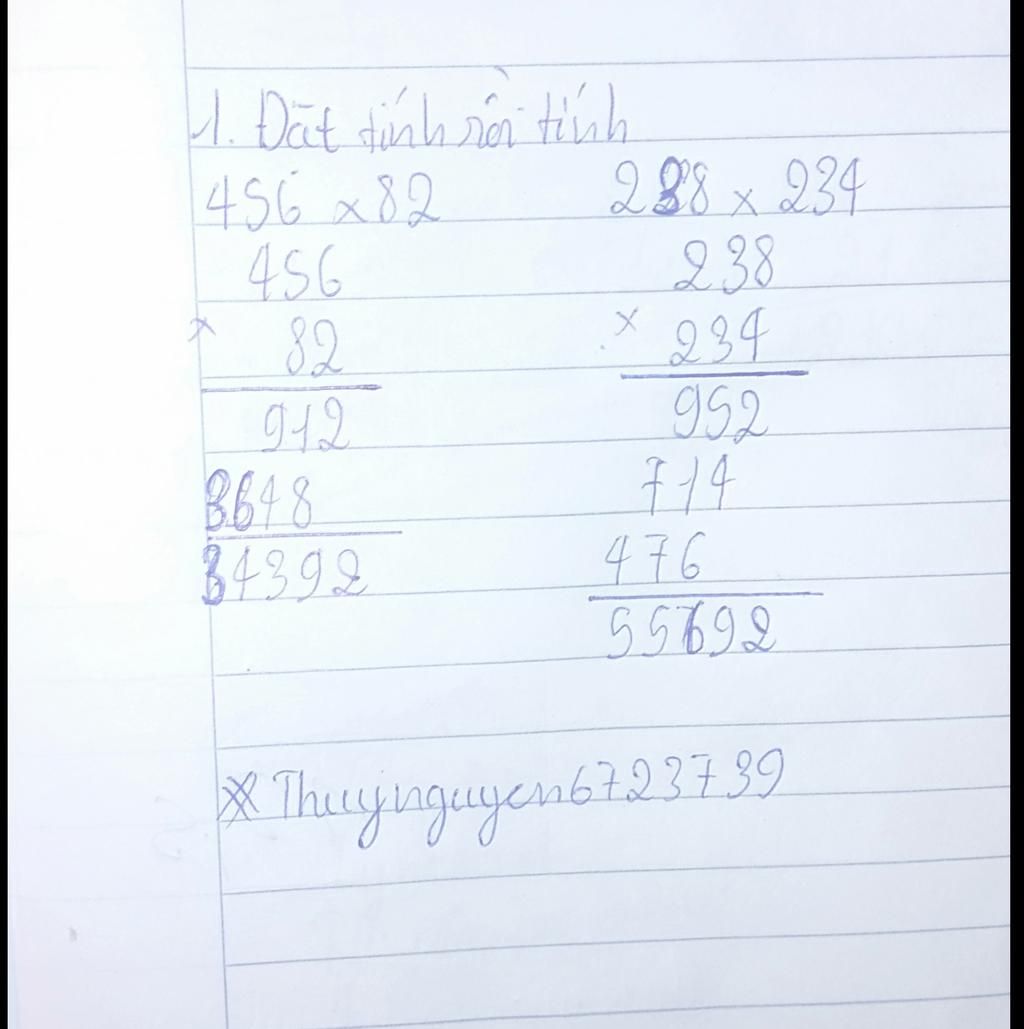 1. Đặt tính rồi tính
456 x 82 238 x 234
456 238
x 82 x 234
912 952
3648 714
34392 476
55692
* Thuynguyen6723739